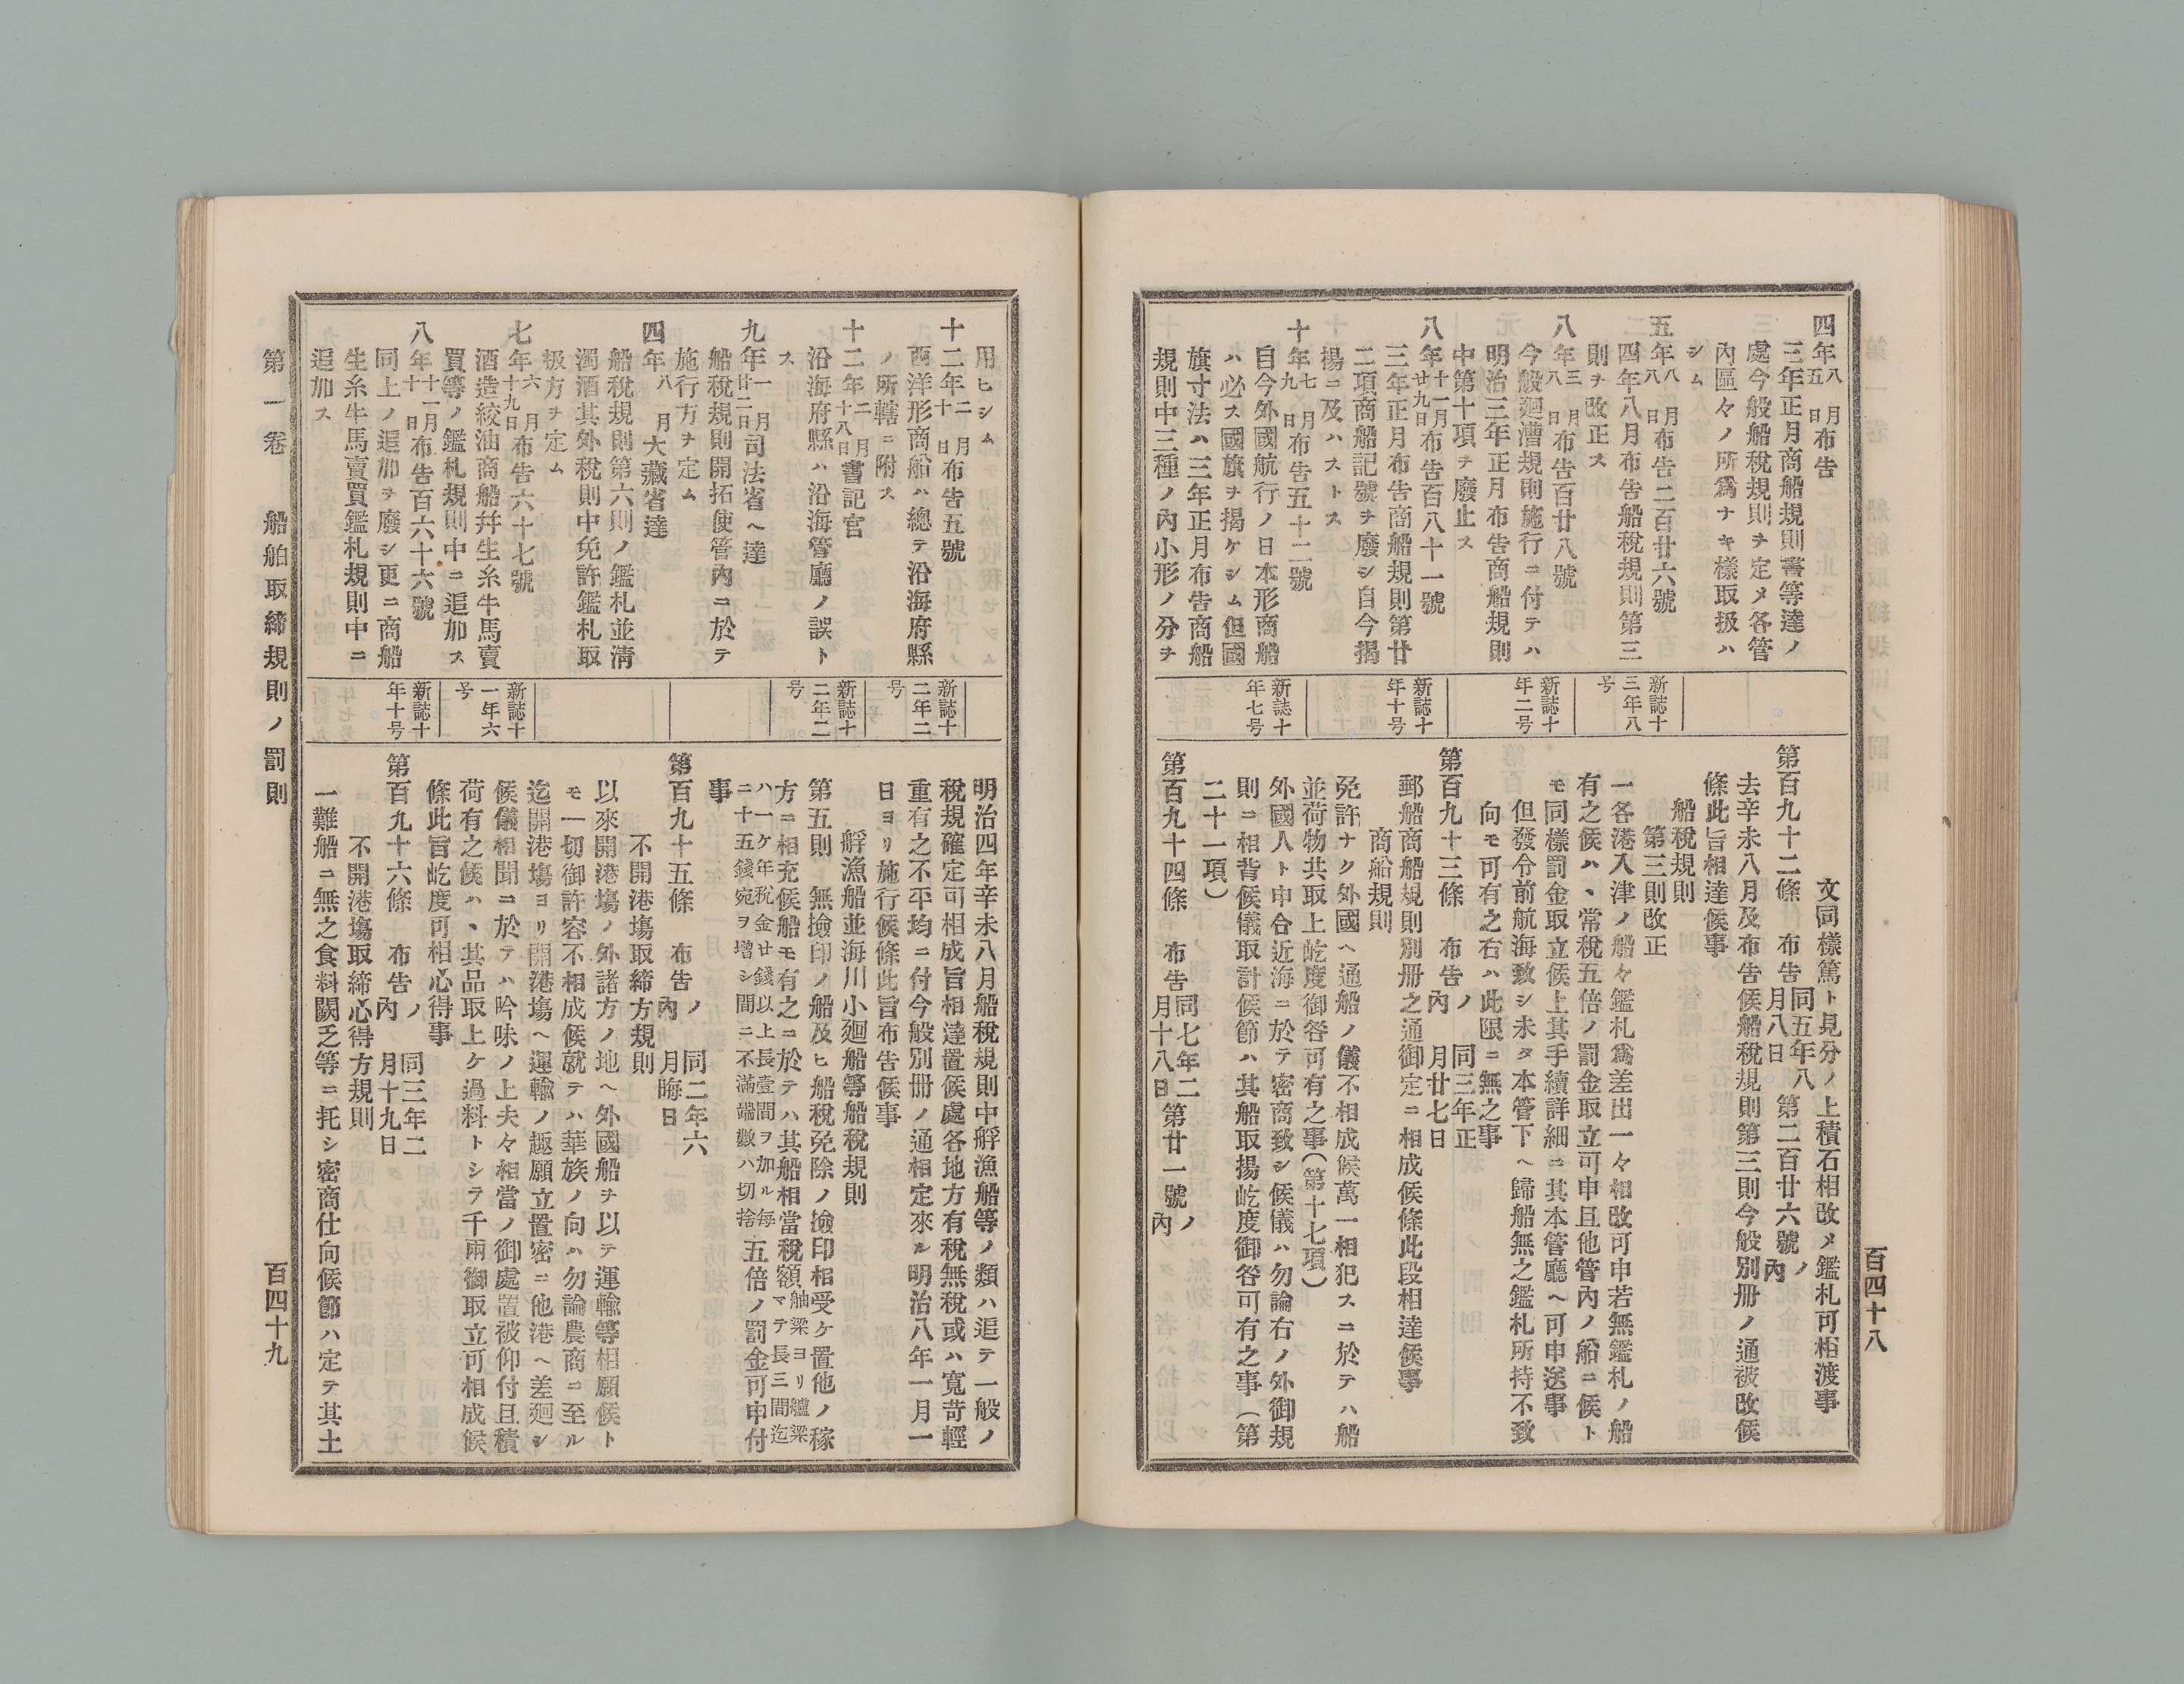 百四十八
四年八月五日布告
三年正月商船規則書等達ノ
處今般船稅規則ヲ定メ各管
內區々ノ所爲ナキ樣取扱ハ
シム
五年八月八日布告二百廿六號
四年八月布告船稅規則第三
則ヲ改正ス
八年三月八日布告百廿八號
今般廻漕規則施行ニ付テハ
明治三年正月布告商船規則
中第十項ヲ廢止ス
八年十一月廿九日布告百八十一號
三年正月布告商船規則第廿
二項商船記號ヲ廢シ自今揭
揚ニ及ハストス
十年七月九日布告五十二號
自今外國航行ノ日本形商船
ハ必ス國旗ヲ揭ケシム但國
旗寸法ハ三年正月布告商船
規則中三種ノ內小形ノ分ヲ
新誌十三年八号
新誌十年二号
新誌十年十号
新誌十年七号
文同樣篤ト見分ノ上積石相改メ鑑札可相渡事
第百九十二條 布告同五年八月八日 第二百廿六號ノ內
去辛未八月及布告候船稅規則第三則今般別册ノ通被改候
條此旨相達候事
船稅規則
第三則改正
一各港入津ノ船々鑑札爲差出一々相改可申若無鑑札ノ船
有之候ハヽ常稅五倍ノ罰金取立可申且他管內ノ船ニ候ト
モ同樣罰金取立候上其手續詳細ニ其本管廳ヘ可申送事
但發令前航海致シ未タ本管下ヘ歸船無之鑑札所持不致
向モ可有之右ハ此限ニ無之事
第百九十三條 布告ノ內 同三年正月廿七日
郵船商船規則別册之通御定ニ相成候條此段相達候事
商船規則
免許ナク外國ヘ通船ノ儀不相成候萬一相犯スニ於テハ船
並荷物共取上屹度御咎可有之事(第十七項)
外國人ト申合近海ニ於テ密商致シ候儀ハ勿論右ノ外御規
則ニ相背候儀取計候節ハ其船取揚屹度御咎可有之事(第
二十一項)
第百九十四條 布告同七年二月十八日第廿一號ノ內
用ヒシム
十二年二月十日布告五號
西洋形商船ハ總テ沿海府縣
ノ所轄ニ附ス
十二年二月十八日書記官
沿海府縣ハ沿海管廳ノ誤ト
ス
九年一月廿二日司法省ヘ達
船稅規則開拓使管內ニ於テ
施行方ヲ定ム
四年八月大藏省達
船稅規則第六則ノ鑑札並淸
濁酒其外稅則中免許鑑札取
扱方ヲ定ム
七年六月十九日布告六十七號
酒造絞油商船幷生糸牛馬賣
買等ノ鑑札規則中ニ追加ス
八年十一月十日布告百六十六號
同上ノ追加ヲ廢シ更ニ商船
生糸牛馬賣買鑑札規則中ニ
追加ス
新誌十二年二号
新誌十二年二号
新誌十一年六号
新誌十年十号
明治四年辛未八月船稅規則中艀漁船等ノ類ハ追テ一般ノ
稅規確定可相成旨相達置候處各地方有稅無稅或ハ寬苛輕
重有之不平均ニ付今般別冊ノ通相定來ル明治八年一月一
日ヨリ施行候條此旨布告候事
艀漁船並海川小廻船等船稅規則
第五則 無撿印ノ船及ヒ船稅免除ノ撿印相受ケ置他ノ稼
方ニ相充候船モ有之ニ於テハ其船相當稅額舳梁ヨリ艫梁マテ長三間迄
ハ一ケ年稅金廿錢以上長壹間ヲ加ル每ニ十五錢宛ヲ增シ間ニ不滿端數ハ切捨五倍ノ罰金可申付
事
第百九十五條 布告ノ內 同二年六月晦日
不開港場取締方規則
以來開港場ノ外諸方ノ地ヘ外國船ヲ以テ運輸等相願候ト
モ一切御許容不相成候就テハ華族ノ向ハ勿論農商ニ至ル
迄開港場ヨリ開港場ヘ運輸ノ趣願立置密ニ他港ヘ差廻シ
候儀相聞ニ於テハ吟味ノ上夫々相當ノ御處置被仰付且積
荷有之候ハヽ其品取上ケ過料トシテ千兩御取立可相成候
條此旨屹度可相心得事
第百九十六條 布告ノ內 同三年二月十九日
不開港場取締心得方規則
一難船ニ無之食料闕乏等ニ托シ密商仕向候節ハ定テ其土
第一卷 船舶取締規則ノ罰則
百四十九